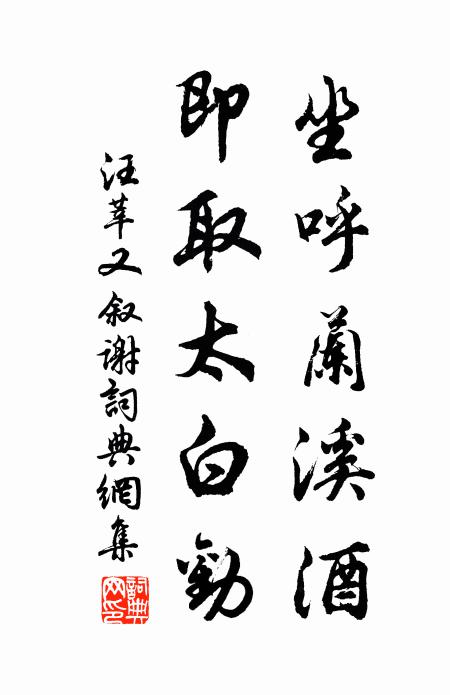 坐呼蘭溪酒
即取太白勸
汪莘又叙謝詞典網集
詞典網印